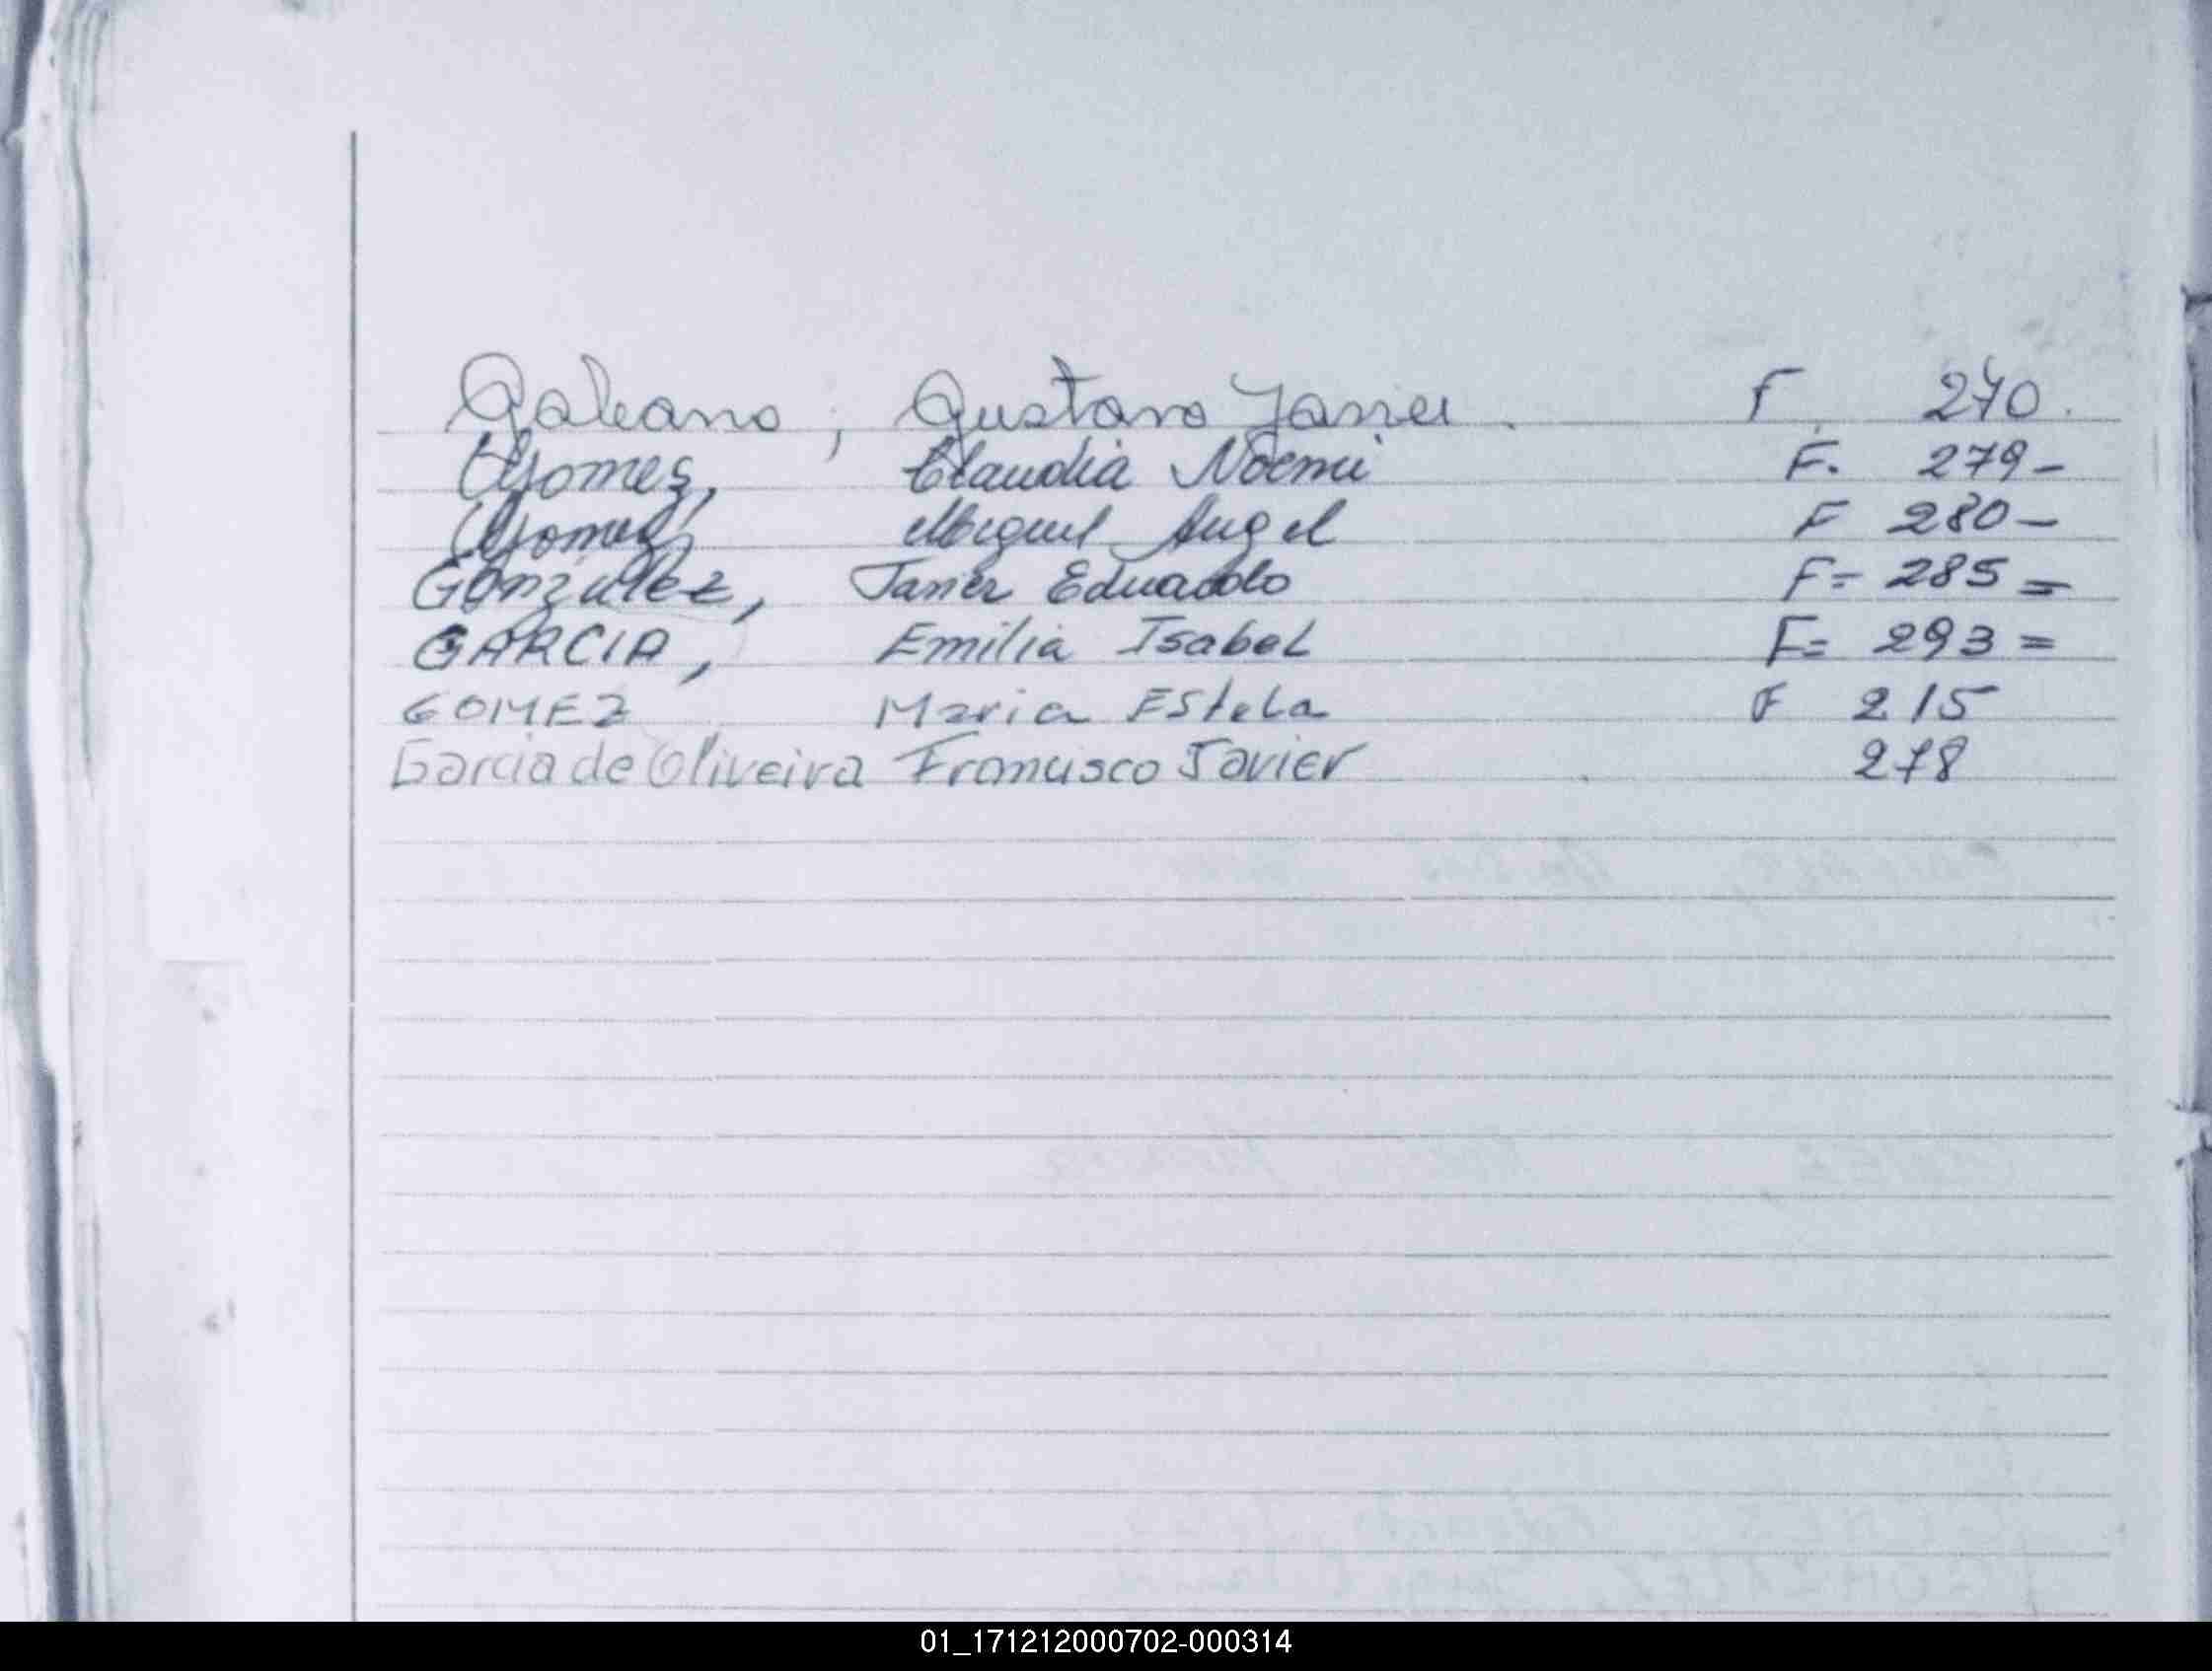 Galeano, Gustavo Javier. F. 270.
Gomez, Claudia Noemi F. 279-
Gomez, Miguel Angel F 280-
Gonzalez, Javier Eduardo F= 285=
GARCIA, Emilia Isabel F= 293=
GOMEZ Maria EStela F 215
Garcia de Oliveira Francisco Javier 278
01_171212000702-000314